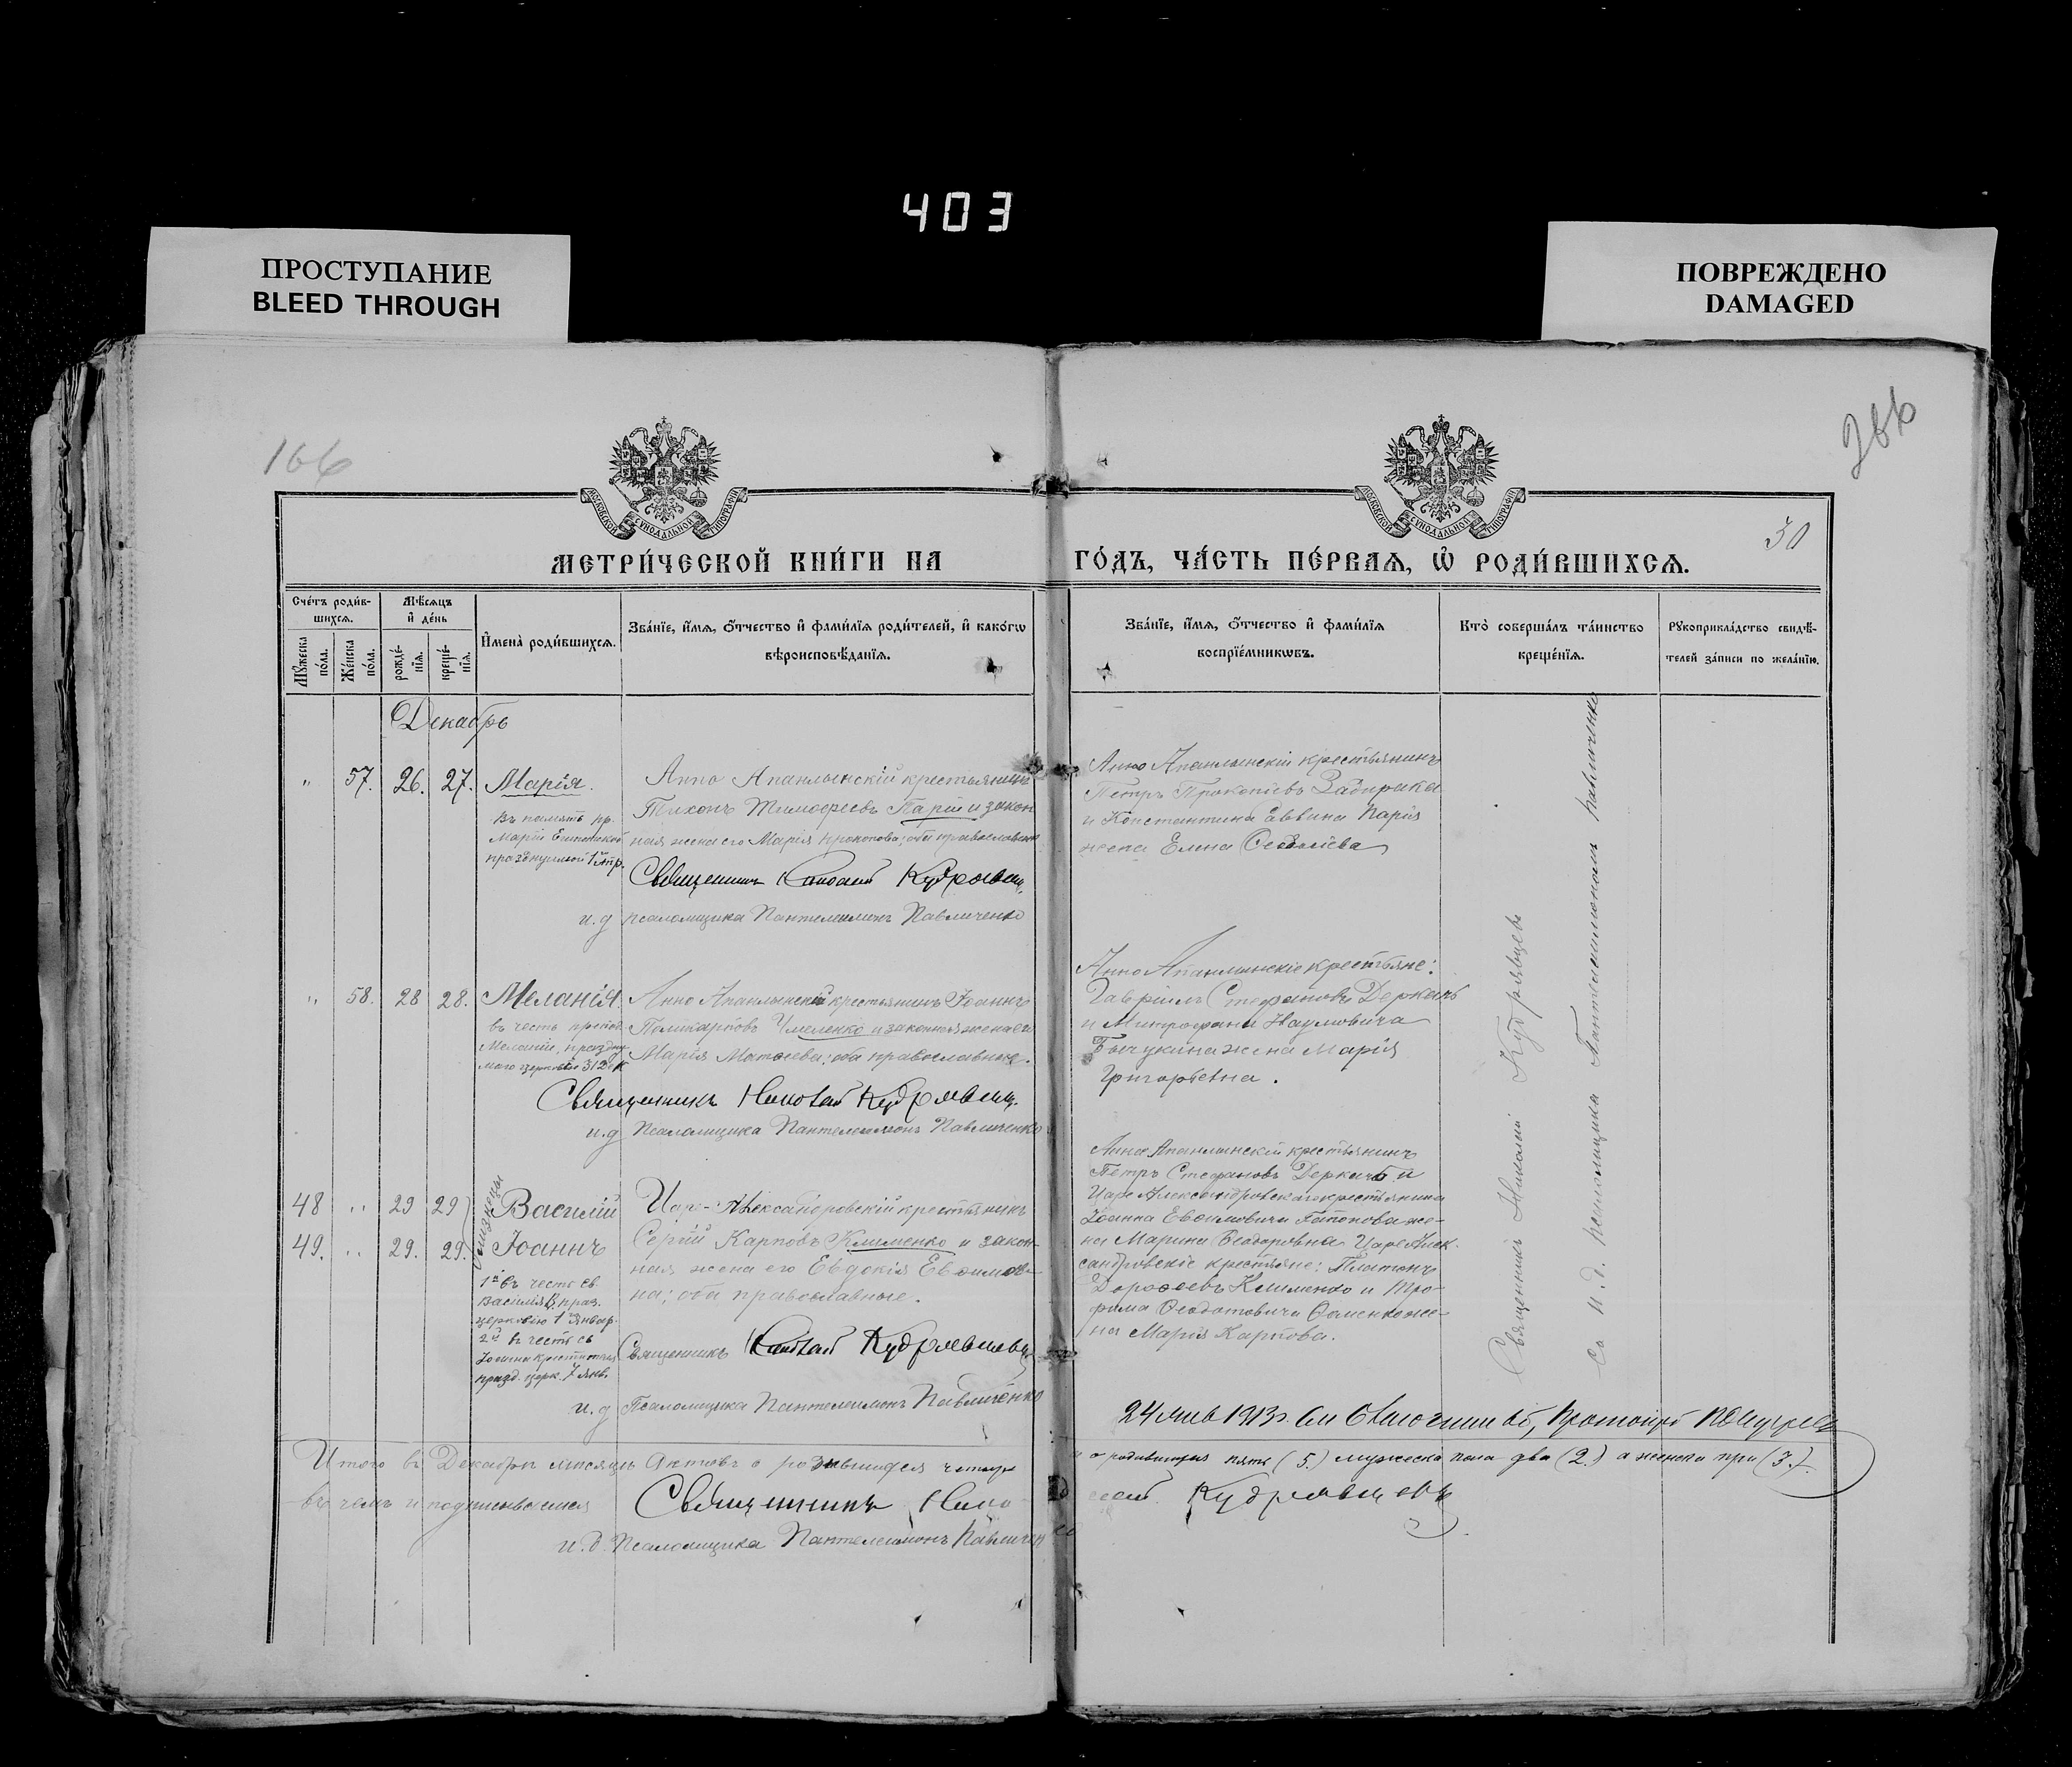 403
ПРОСТУПАНИЕ
BLEED THROUGH
ПОВРЕЖДЕНО
DAMAGED
166
30
МОСКОВСКОЙ СѴНОДАЛЬНОЙ ТИПОГРАФІИ
МОСКОВСКОЙ СѴНОДАЛЬНОЙ ТИПОГРАФІИ
МЕТРИ́ЧЕСКОЙ КНИ́ГИ НА ГО́ДЪ, ЧА́СТЬ ПЕ́РВАѦ, Ѡ҆ РОДИ́ВШИХСѦ.
Сче́тъ роди́в-
шихсѧ.
Мꙋ́жеска по́ла.
Же́нска по́ла.
Мѣ́сѧцъ
и҆ де́нь
рожде́-
нїѧ.
креще́-
нїѧ.
И҆мена̀ роди́вшихсѧ.
Зва́нїе, и҆́мѧ, ѻ҆́тчество и҆ фами́лїѧ роди́телей, и҆ како́гѡ
вѣроисповѣ́данїѧ.
Зва́нїе, и҆́мѧ, ѻ҆́тчество и҆ фами́лїѧ
воспрїе́мникѡвъ.
Кто̀ соверша́лъ та́инство
креще́нїѧ.
Рꙋкоприкла́дство свидѣ́-
телей за́писи по жела́нїю.
Декабрь
" 57. 26. 27. Марія.
Въ память пр.
Маріи Египетской
празднуемой 1 Апр.
Анно Апанлынскій крестьянинъ
Тихонъ Тимофеевъ Парій и закон
ная жена его Марія Прокопова; оба православные
Священникъ Николай Кудрявцевъ
и.д псаломщика Пантелеимонъ Павличенко
Анно Апанлынскій крестьянинъ
Петръ Прокопіевъ Задирака
и Константина Саввина Парія
жена Елена
" 58. 28 28. Меланія
въ честь препод.
Меланіи, праздну-
емаго церковію 31 Дек
Анно Апанлынскій крестьянинъ Іоаннъ
Поликарповъ Чмеленко и законная жена его
Марія Матѳеева; оба православные.
Священникъ Николай Кудрявцевъ
и.д Псаломщика Пантелеимонъ Павличенко
Анно Апанлынскіе крестьяне:
Гавріилъ Стефановъ Деркачъ
и Митрофана Наумовича
жена Марія
Григорьевна.
близнецы
48 " 29 29 Василій
49. " 29. 29. Іоаннъ
1й въ честь св.
Василія В. праз.
церковію 1 Январ.
2й въ честь св
Іоанна крестителя
празд. церк. 7 янв.
Царе-Александровскій крестьянинъ
Сергій Карповъ Клименко и закон-
ная жена его Евдокія Евѳимов-
на; оба православные.
Священникъ Николай Кудрявцевъ
и.д Псаломщика Пантелеимонъ Павличенко
Анно Апанлынскій крестьянинъ
Петръ Стефановъ Деркачъ и
Царе Александровскаго крестьянина
Іоанна Евѳимовича Гапонова же-
на Марина Ѳеодоровна Царе Алек-
сандровскіе крестьяне: Платонъ
Дороѳеевъ Клименко и Тро-
фима Ѳеодотовича же-
на Марія Карпова.
Священникъ Николай Кудрявцевъ
Съ и.д. псаломщика Пантелеимономъ Павличенко
24 янв 1913 г. Протоіерей
Итого въ Декабрѣ мѣсяцѣ Актовъ о родившихся четыре а родившихся пять (5.) мужеска пола два (2.) а женска три (3.).
въ чемъ и подписываемся Священникъ Николай Кудрявцевъ
и.д. Псаломщика Пантелеимонъ Павличенко